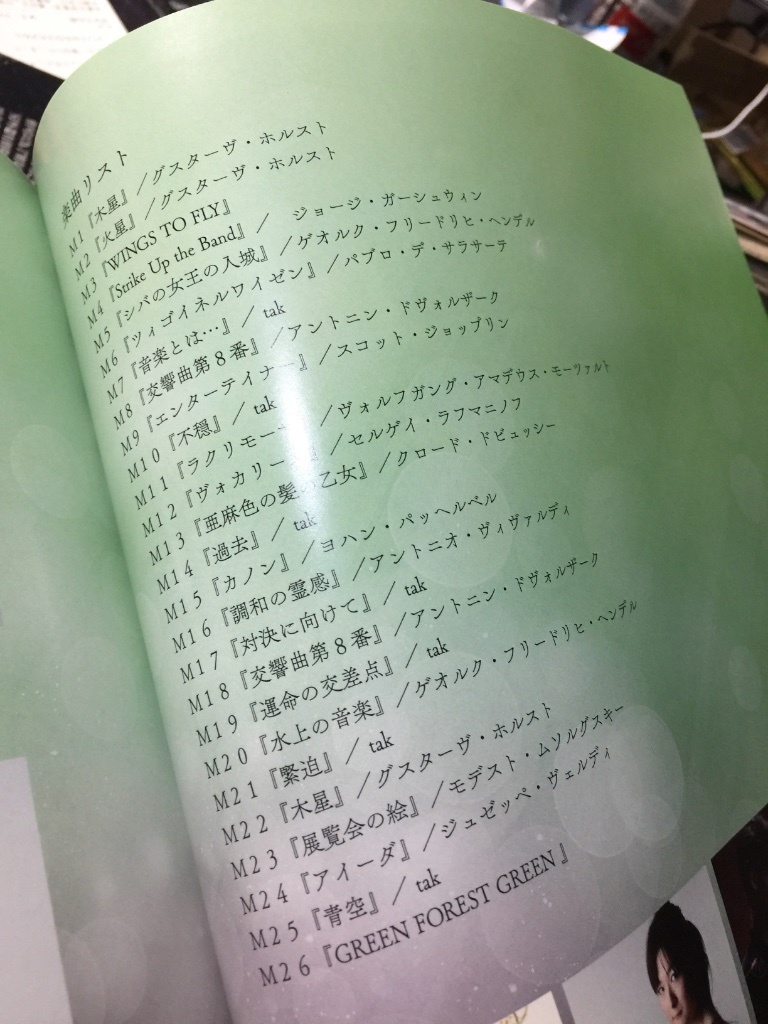 楽曲リスト
M1『木星』/グスターヴ・ホルスト
M2『火星』/グスターヴ・ホルスト
M3『WINGS TO FLY』
M4『Strike Up the Band』/ ジョージ・ガーシュウィン
M5『シバの女王の入城』/ゲオルク・フリードリヒ・ヘンデル
M6『ツィゴイネルワイゼン』/パブロ・デ・サラサーテ
M7『音楽とは…』/ tak
M8『交響曲第8番』/アントニン・ドヴォルザーク
M9『エンターテイナー』/スコット・ジョップリン
M10『不穏』/ tak
M11『ラクリモーサ』/ヴォルフガング・アマデウス・モーツァルト
M12『ヴォカリーズ』/セルゲイ・ラフマニノフ
M13『亜麻色の髪の乙女』/クロード・ドビュッシー
M14『過去』/ tak
M15『カノン』/ヨハン・パッヘルベル
M16『調和の霊感』/アントニオ・ヴィヴァルディ
M17『対決に向けて』/ tak
M18『交響曲第8番』/アントニン・ドヴォルザーク
M19『運命の交差点』/ tak
M20『水上の音楽』/ゲオルク・フリードリヒ・ヘンデル
M21『緊迫』/ tak
M22『木星』/グスターヴ・ホルスト
M23『展覧会の絵』/モデスト・ムソルグスキー
M24『アイーダ』/ジュゼッペ・ヴェルディ
M25『青空』/ tak
M26『GREEN FOREST GREEN』